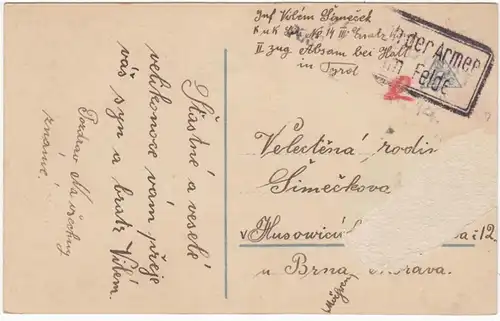 Inf Vilém Šimeček
K u K No 14 III Ersatz
II zug Absam bei Hall
in Tyrol
der Armee
im Felde
Šťastné a veselé
velikonoce vám přeje
váš syn a bratr Vilém.
Pozdrav Na všechny
známé!
Velectěná rodin
Šimečkova
v Husovicích 12
u Brna Morava.